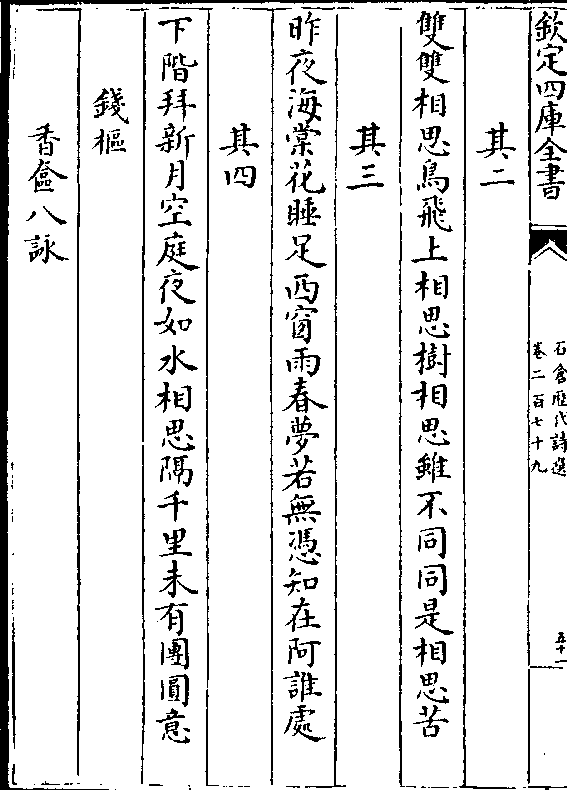 欽定四庫全書
石倉歷代詩選
卷二百七十九
五十一
其二
雙雙相思鳥飛上相思樹相思雖不同同是相思苦
其三
昨夜海棠花睡足西窗雨春夢若無憑知在阿誰處
其四
下階拜新月空庭夜如水相思隔千里未有團圓意
錢樞
香奩八詠